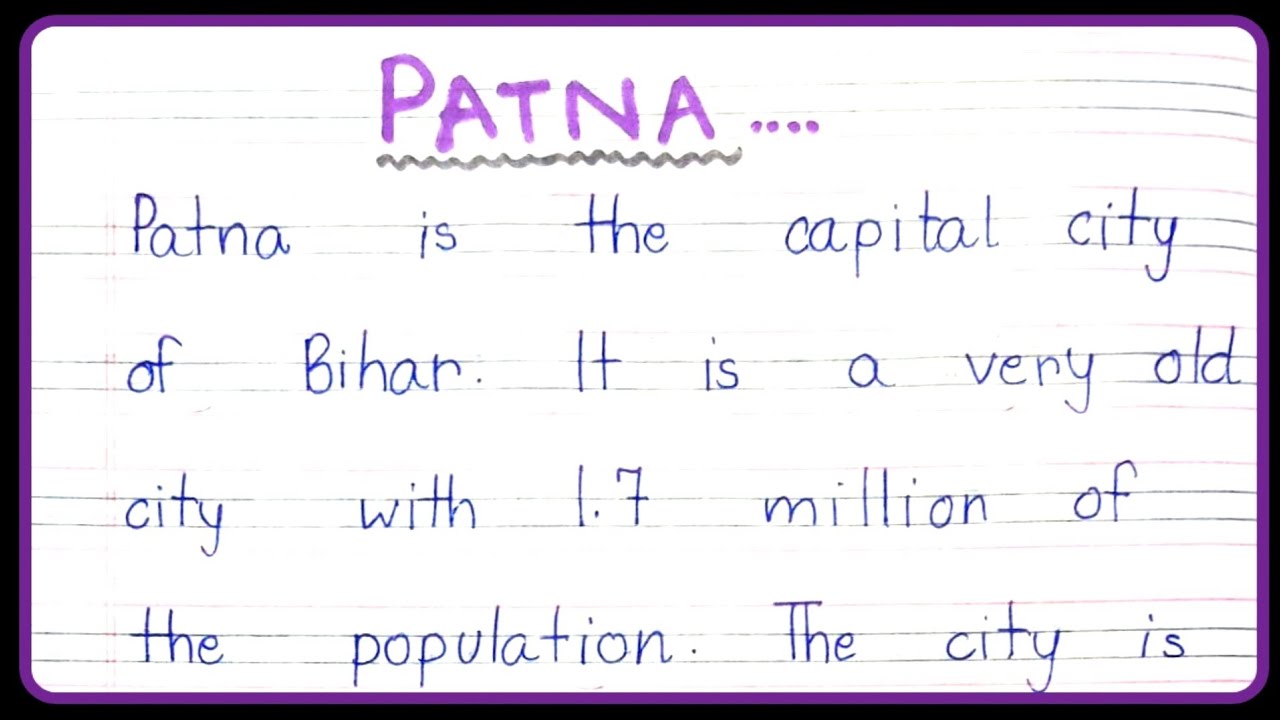 PATNA ....
Patna is the capital city
of Bihar. It is a very old
city with 1.7 million of
the population. The city is